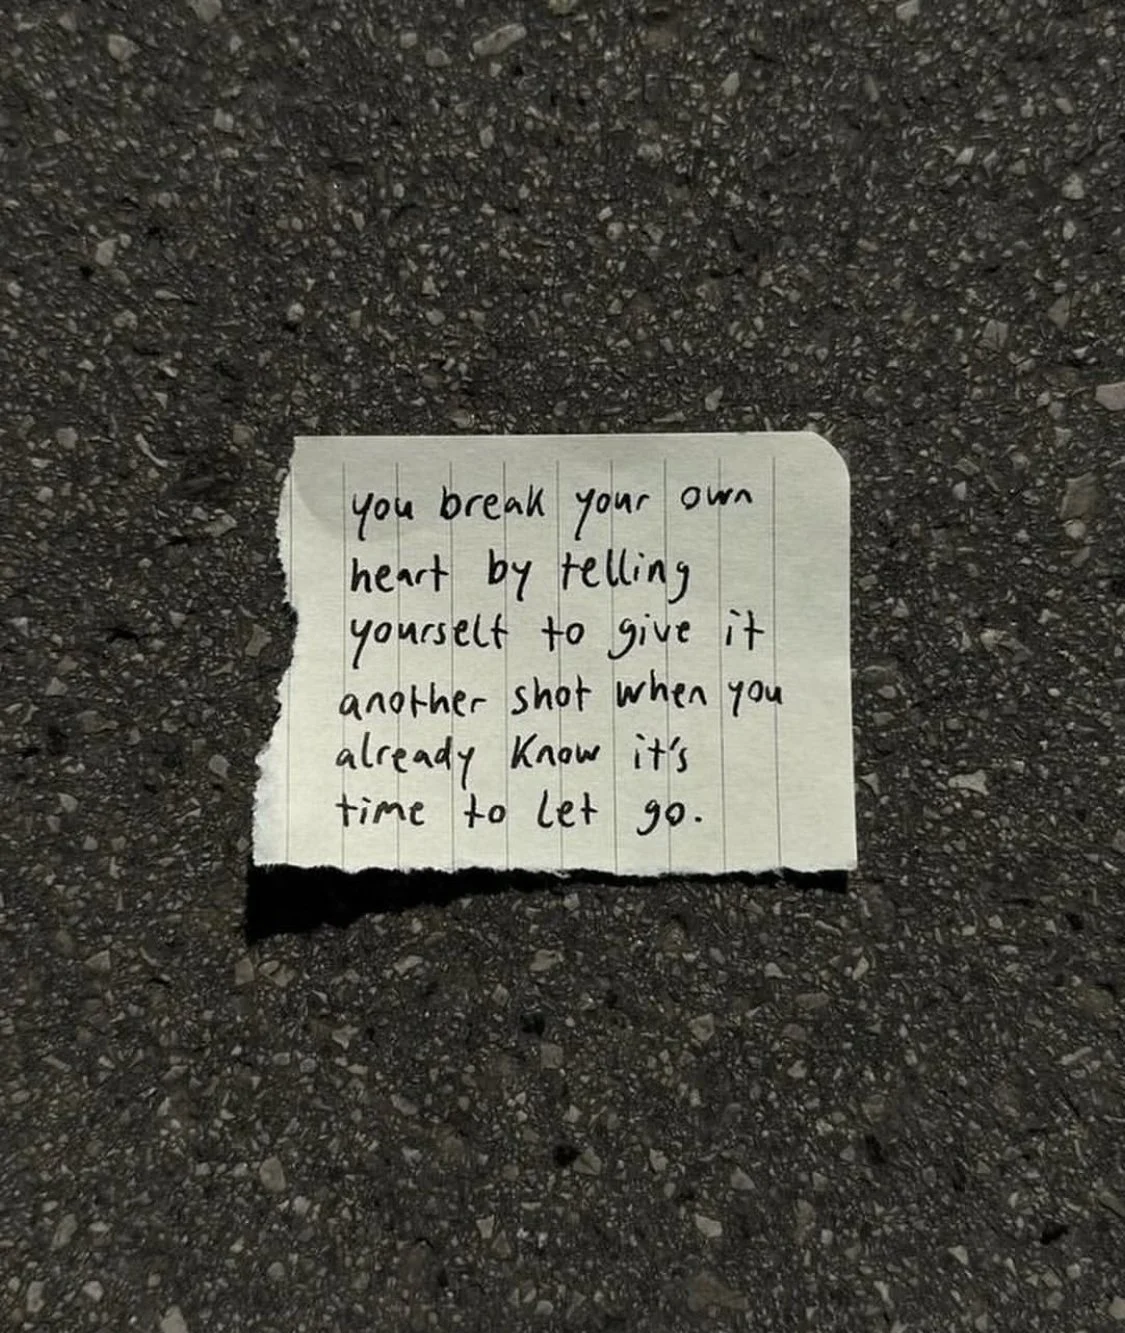 you break your own
heart by telling
yourself to give it
another shot when you
already know it's
time to let go.